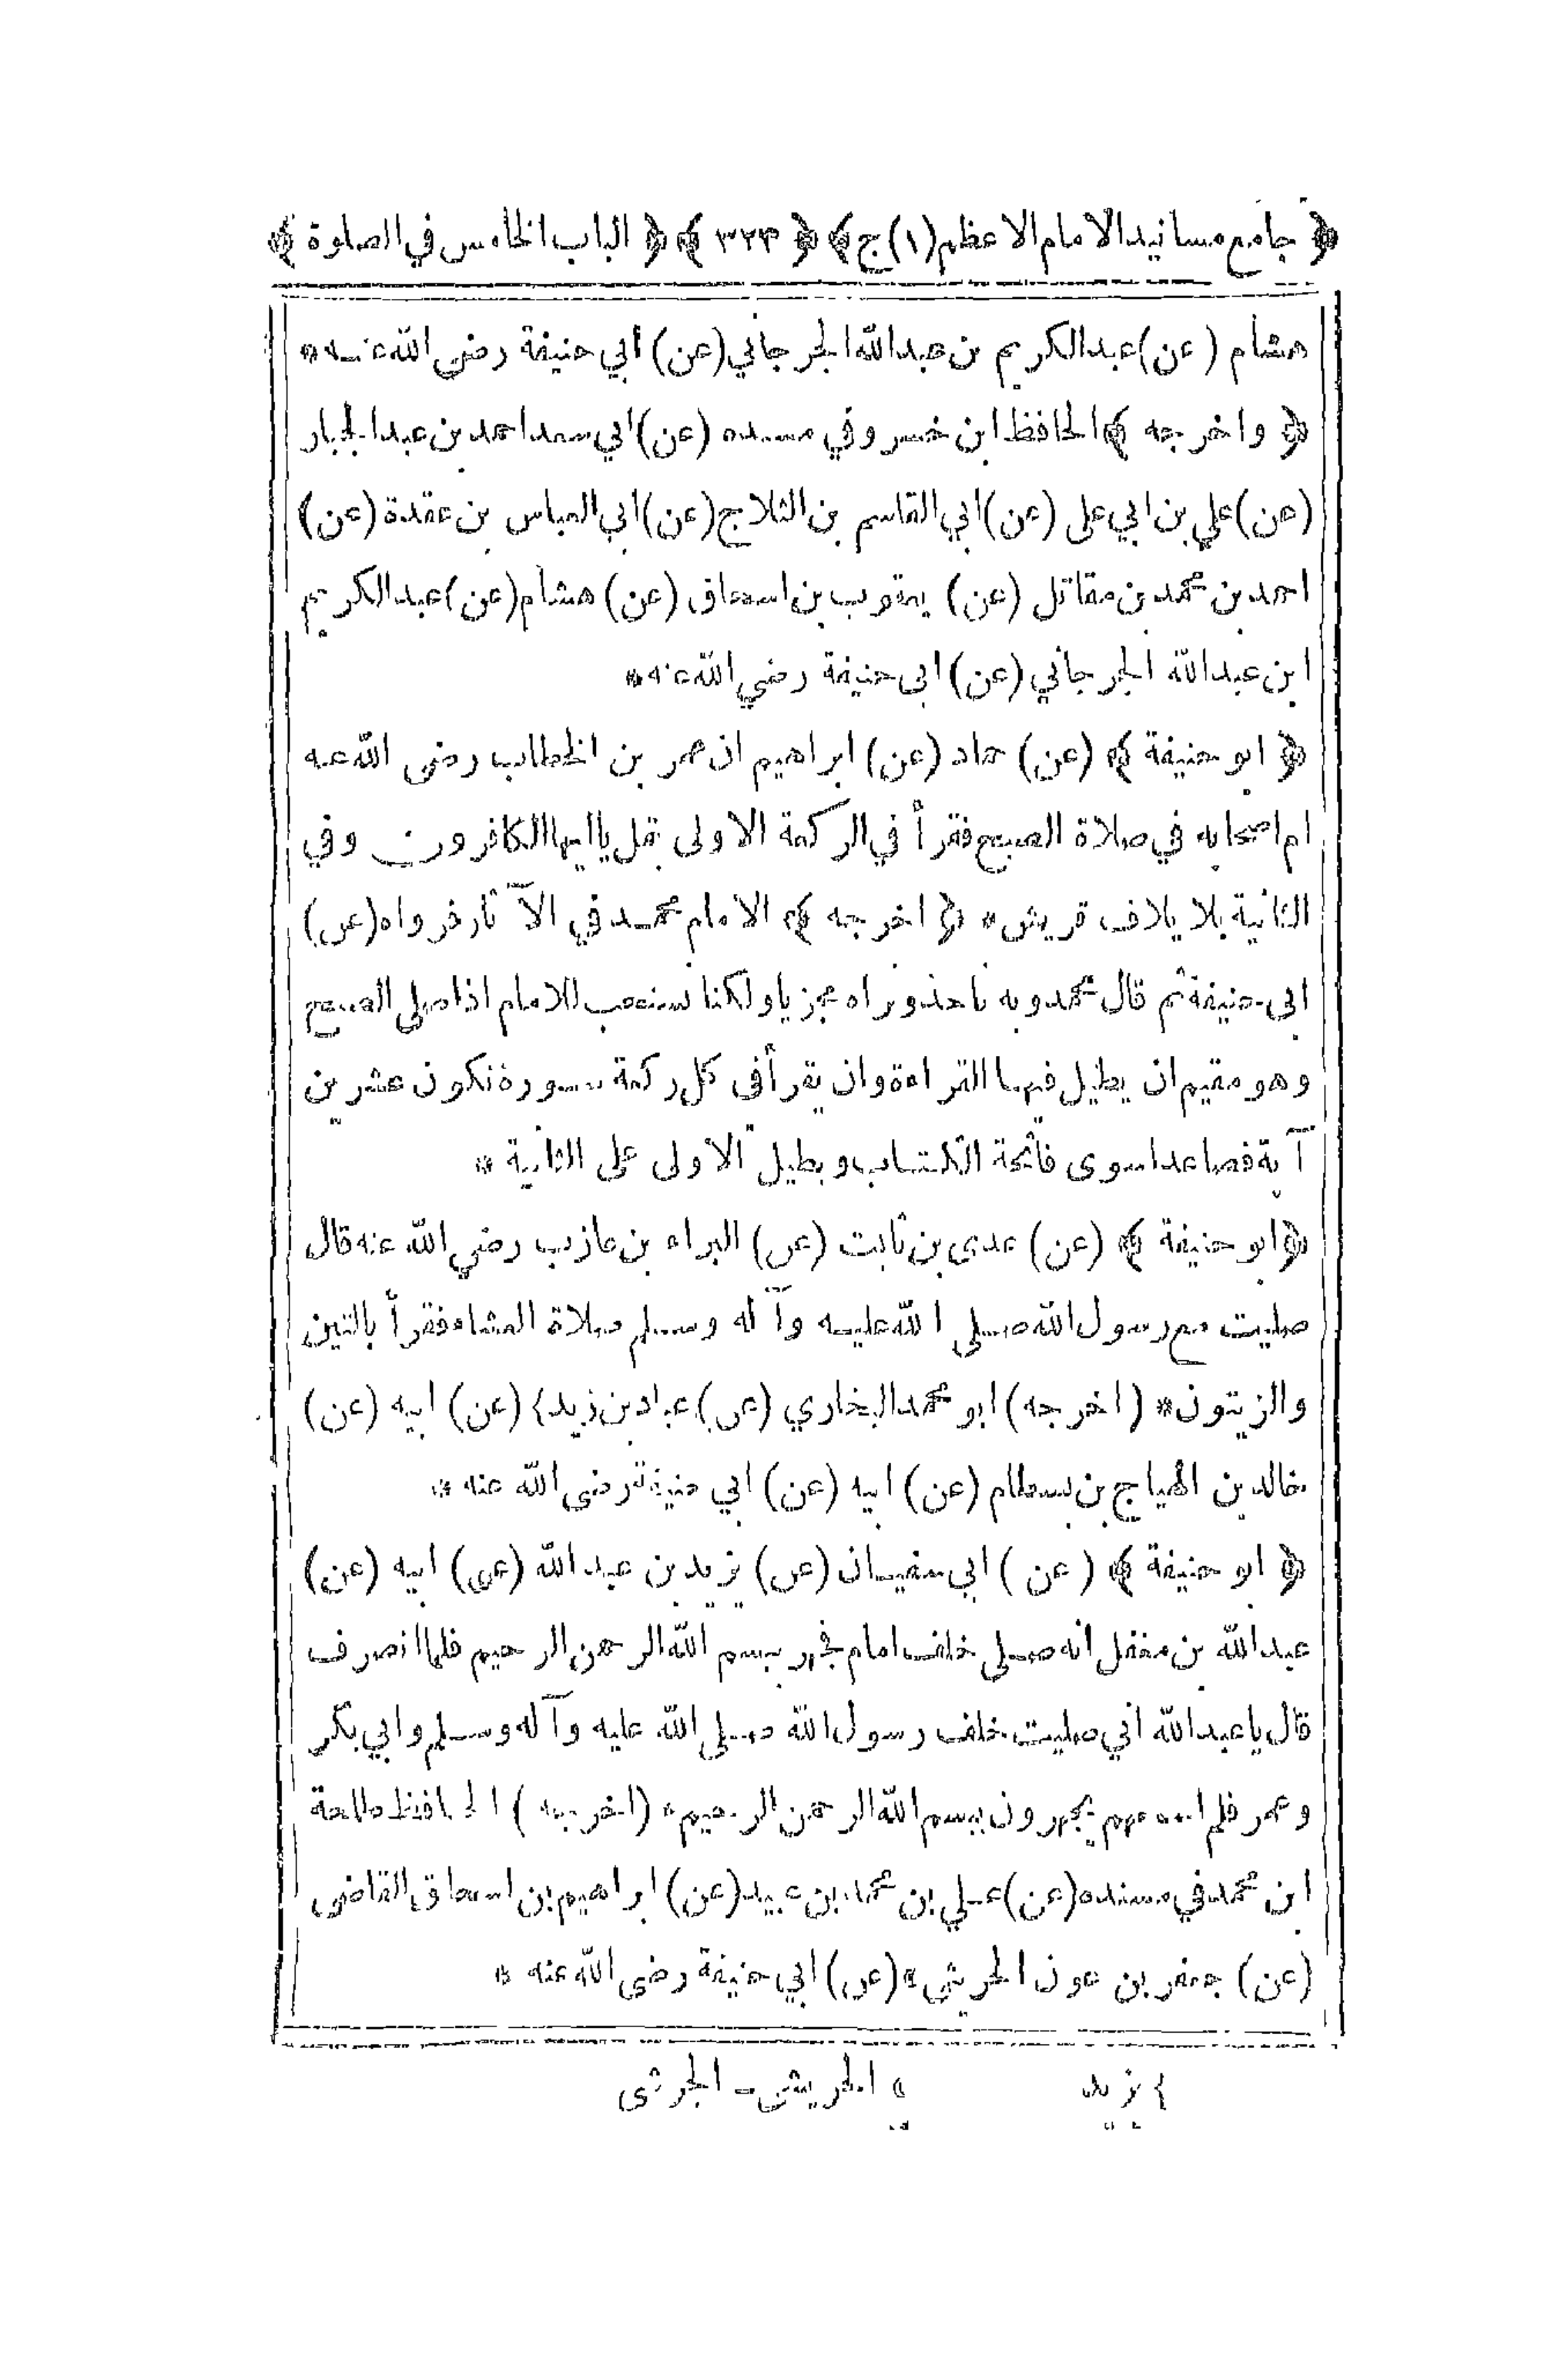 ﴿ جامع مسانيد الامام الاعظم (١) ج ﴾ ﴿ ٣٢٣ ﴾ ﴿ الباب الخامس في الصلوة ﴾
هشام (عن) عبدالكريم بن عبدالله الجرجاني (عن) أبي حنيفة رضى الله عنه *
﴿ واخرجه ﴾ الحافظ ابن خسرو في مسنده (عن) ابي سعد احمد بن عبدالجبار
(عن) علي بن ابي على (عن) ابي القاسم بن الثلاج (عن) ابي العباس بن عقدة (عن)
احمد بن محمد بن مقاتل (عن) يعقوب بن اسحاق (عن) هشام (عن) عبدالكريم
ابن عبدالله الجرجاني (عن) ابى حنيفة رضي الله عنه *
﴿ ابو حنيفة ﴾ (عن) حماد (عن) ابراهيم ان عمر بن الخطاب رضى الله عنه
ام اصحابه في صلاة الصبح فقرأ في الركعة الاولى بقل يا ايها الكافرون وفي
الثانية بلايلاف قريش * ﴿ اخرجه ﴾ الامام محمد في الآثار فرواه (عن)
ابى حنيفة ثم قال محمد وبه ناخذ ونراه مجزيا ولكنا نستحب للامام اذا صلى الصبح
وهو مقيم ان يطيل فيها القراءة وان يقرأ فى كل ركعة بسورة تكون عشرين
آية فصاعدا سوى فاتحة الكتاب ويطيل الاولى على الثانية *
﴿ ابو حنيفة ﴾ (عن) عدى بن ثابت (عن) البراء بن عازب رضي الله عنه قال
صليت مع رسول الله صلى الله عليه وآله وسلم صلاة العشاء فقرأ بالتين
والزيتون * (اخرجه) ابو محمد البخاري (عن) عباد بن زيد} (عن) ابيه (عن)
خالد بن الهياج بن بسطام (عن) ابيه (عن) ابي حنيفة رضى الله عنه *
﴿ ابو حنيفة ﴾ (عن) ابي سفيان (عن) يزيد بن عبدالله (عن) ابيه (عن)
عبدالله بن مغفل انه صلى خلف امام فجهر ببسم الله الرحمن الرحيم فلما انصرف
قال يا عبدالله اني صليت خلف رسول الله صلى الله عليه وآله وسلم وابي بكر
وعمر فلم اسمعهم يجهرون ببسم الله الرحمن الرحيم * (اخرجه) الحافظ طلحة
ابن محمد في مسنده (عن) علي بن محمد بن عبيد (عن) ابراهيم بن اسحاق القاضى
(عن) جعفر بن عون الحريثى (عن) ابي حنيفة رضى الله عنه *
} يزيد الحريش - الجرثى